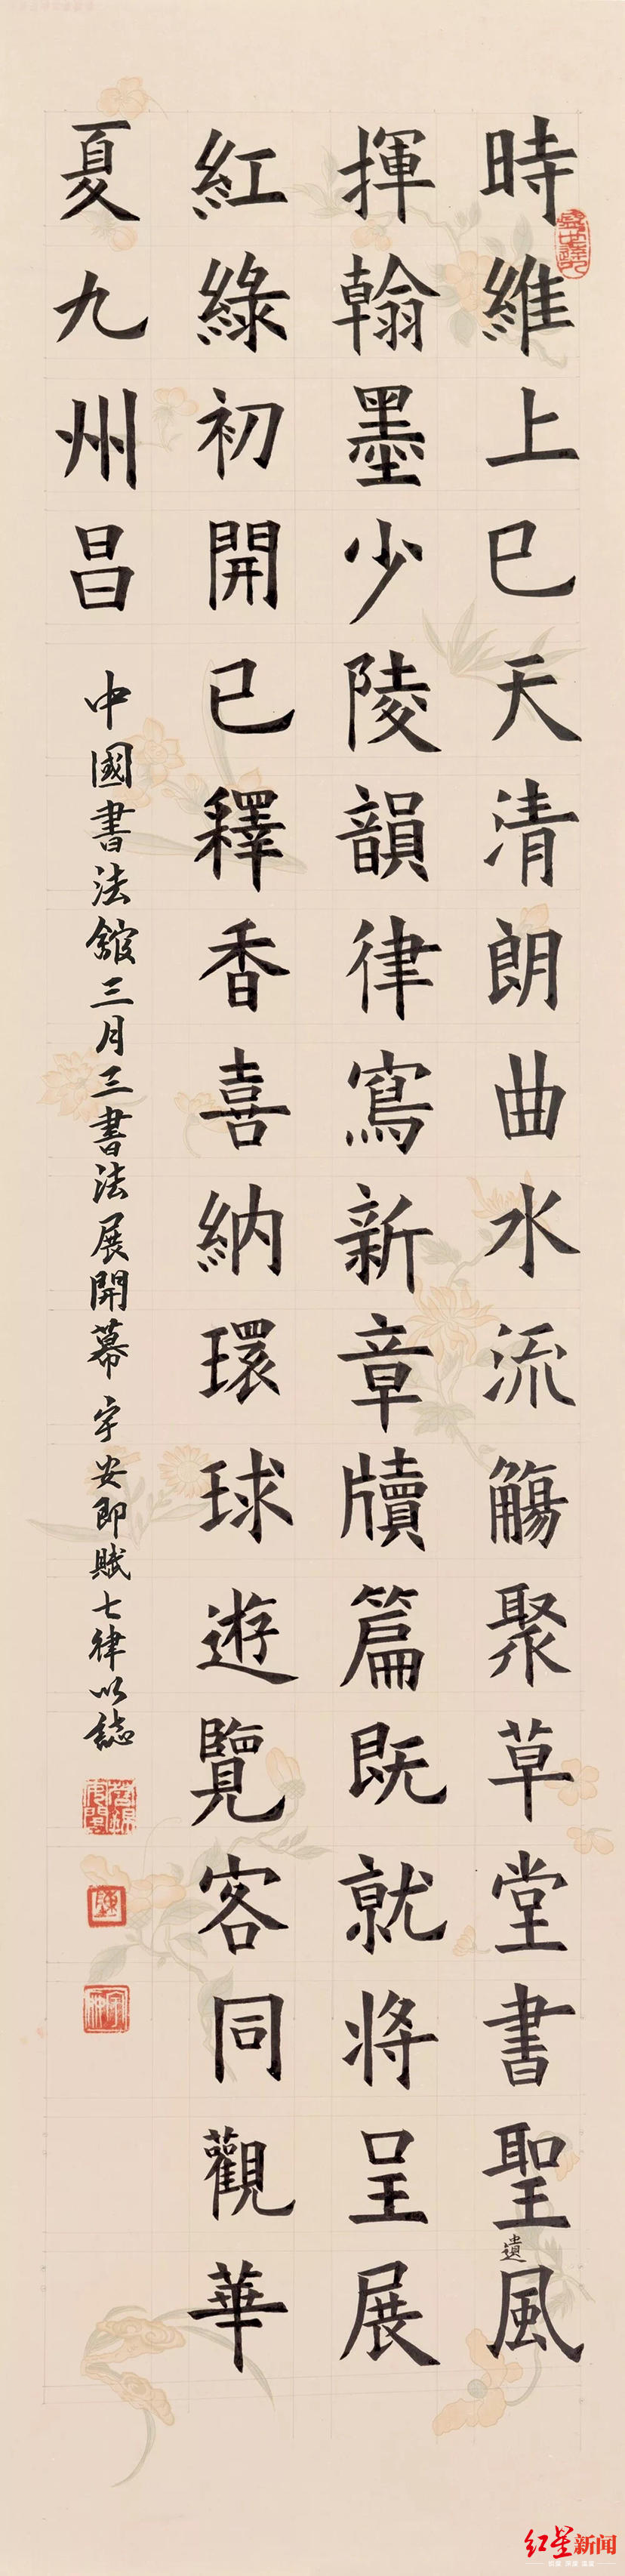 時維上巳天清朗曲水流觴聚草堂書聖遺風
揮翰墨少陵韻律寫新章牘篇既就將呈展
紅綠初開已釋香喜納環球遊覽客同觀華
夏九州昌
中國書法館三月三書法展開幕宇安即賦七律以誌
红星新闻